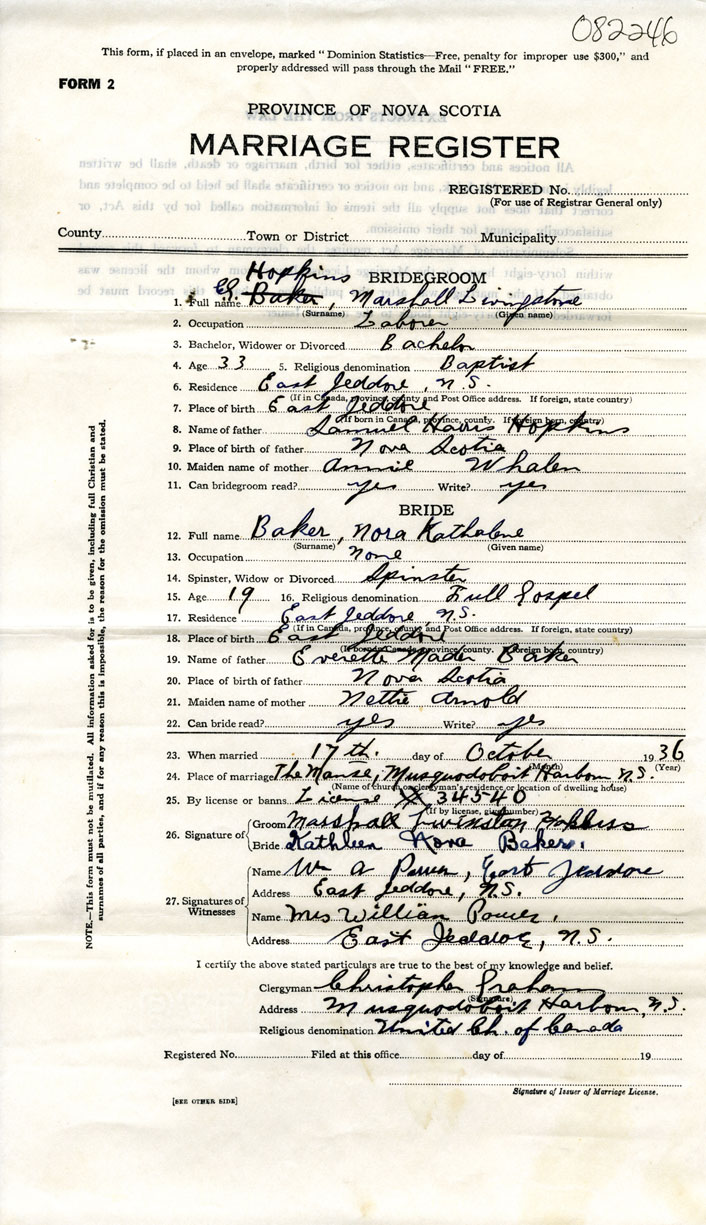 082246
This form, if placed in an envelope, marked "Dominion Statistics—Free, penalty for improper use $300," and
properly addressed will pass through the Mail "FREE."
FORM 2
PROVINCE OF NOVA SCOTIA
MARRIAGE REGISTER
REGISTERED No.
(For use of Registrar General only)
County Town or District Municipality
BRIDEGROOM
Hopkins
1. Full name Baker, Marshall Livingstone
(Surname) (Given name)
2. Occupation Laborer
3. Bachelor, Widower or Divorced Bachelor
4. Age 33 5. Religious denomination Baptist
6. Residence East Jeddore, N.S.
(If in Canada, province, county and Post Office address. If foreign, state country)
7. Place of birth East Jeddore
(If born in Canada, province, county. If foreign born, country)
8. Name of father Samuel Harris Hopkins
9. Place of birth of father Nova Scotia
10. Maiden name of mother Annie Whalen
11. Can bridegroom read? yes Write? yes
BRIDE
12. Full name Baker, Nora Kathalene
(Surname) (Given name)
13. Occupation none
14. Spinster, Widow or Divorced Spinster
15. Age 19 16. Religious denomination Full Gospel
17. Residence East Jeddore, N.S.
(If in Canada, province, county and Post Office address. If foreign, state country)
18. Place of birth East Jeddore
(If born in Canada province, county. If foreign born, country)
19. Name of father Everette Mader Baker
20. Place of birth of father Nova Scotia
21. Maiden name of mother Nettie Arnold
22. Can bride read? yes Write? yes
23. When married 17th. day of October 1936
(Month) (Year)
24. Place of marriage The Manse, Musquodoboit Harbour N.S.
(Name of church or clergyman's residence or location of dwelling house)
25. By license or banns License # 34540
(If by license, give number)
26. Signature of
Groom Marshall Livinston Hopkins
Bride Kathleen Nora Baker.
27. Signatures of Witnesses
Name Wm A Power, East Jeddore
Address East Jeddore, N.S.
Name Mrs William Power,
Address East Jeddore, N.S.
I certify the above stated particulars are true to the best of my knowledge and belief.
Clergyman Christopher Graham
(Signature)
Address Musquodoboit Harbour, N.S.
Religious denomination United Ch. of Canada
Registered No. Filed at this office day of 19
Signature of Issuer of Marriage License.
[SEE OTHER SIDE]
NOTE.—This form must not be mutilated. All information asked for is to be given, including full Christian and
surnames of all parties, and if for any reason this is impossible, the reason for the omission must be stated.